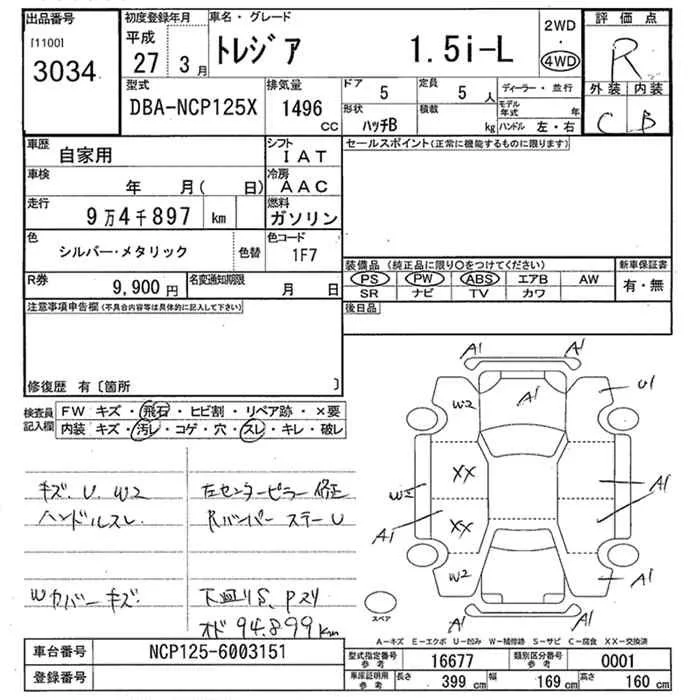 出品番号 初度登録年月 車名・グレード 2WD ・ 4WD 評価点
[1100] 3034 平成 27 3月 トレジア 1.5i-L R
型式 排気量 ドア 定員 ディーラー・並行 外装 内装
DBA-NCP125X 1496 cc 5 5人 モデル年式 年 C B
形状 ハッチB 積載 kg ハンドル 左・右
車歴 自家用 シフト IAT セールスポイント(正常に機能するものに限ります)
車検 年 月( 日) 冷房 AAC
走行 9万4千897 km 燃料 ガソリン
色 シルバー・メタリック 色替 色コード 1F7
装備品 (純正品に限り○をつけてください) 新車保証書
R券 9,900円 名変通知期限 月 日 PS PW ABS エアB AW 有・無
SR ナビ TV カワ
注意事項申告欄(不具合内容等は具体的に記入して下さい) 後日品
修復歴 有〔箇所 〕
検査員記入欄 FW キズ・飛石・ヒビ割・リペア跡・×要
内装 キズ・汚レ・コゲ・穴・スレ・キレ・破レ
A1 A1
W2 A1 U1
XX W2 A1
A1 XX
W2 A1
A1 A1
スペア
キズ、U、W2 左センターピラー修正
ハンドルスレ Rバンパーステー U
Wカバーキズ 下廻りS、Pスリ
オド 94.899Km
A-キズ E-エクボ U-凹み W-補修跡 S-サビ C-腐食 XX-交換済
車台番号 NCP125-6003151 型式指定番号 参考 16677 類別区分番号 参考 0001
登録番号 車庫証明用 参考 長さ 399 cm 幅 169 cm 高さ 160 cm